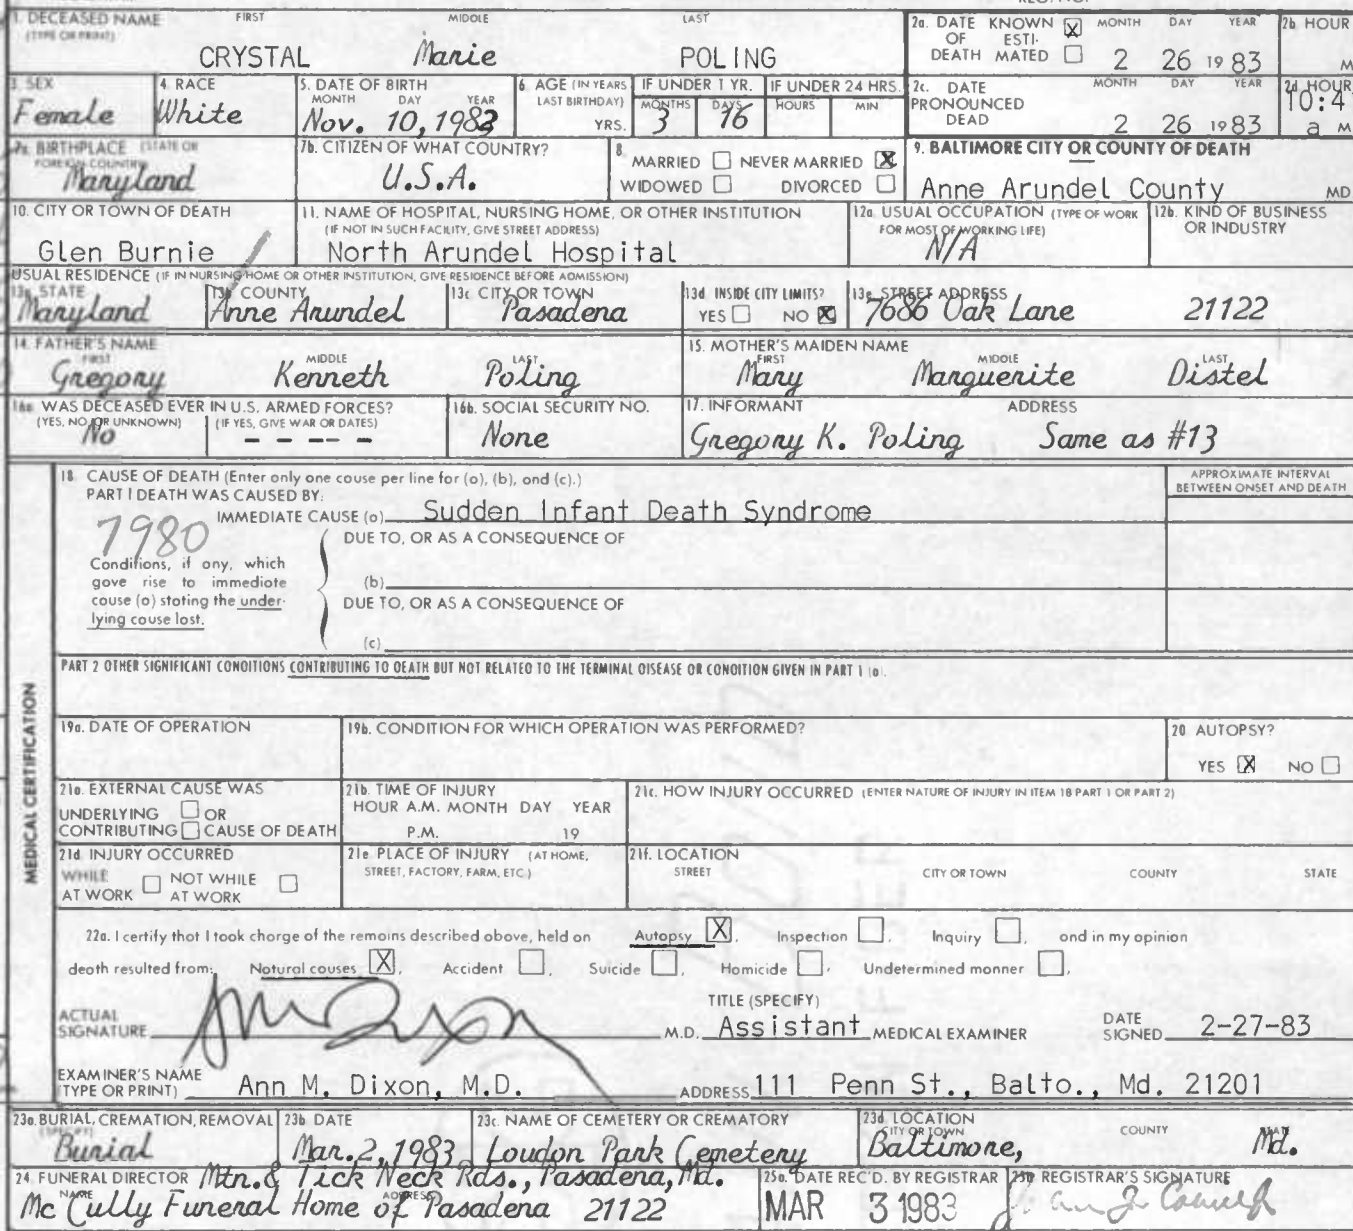 1. DECEASED NAME FIRST MIDDLE LAST
(TYPE OR PRINT)
CRYSTAL Marie POLING
2a. DATE KNOWN X MONTH DAY YEAR
OF ESTI-
DEATH MATED 2 26 19 83
2b HOUR
M
3 SEX
Female
4. RACE
White
5. DATE OF BIRTH
MONTH DAY YEAR
Nov. 10, 1982
6. AGE (IN YEARS
LAST BIRTHDAY)
YRS.
IF UNDER 1 YR.
MONTHS DAYS
3 16
IF UNDER 24 HRS.
HOURS MIN
2c. DATE MONTH DAY YEAR
PRONOUNCED
DEAD 2 26 19 83
2d HOUR
10:4
a M
7a. BIRTHPLACE (STATE OR
FOREIGN COUNTRY)
Maryland
7b. CITIZEN OF WHAT COUNTRY?
U.S.A.
8
MARRIED NEVER MARRIED X
WIDOWED DIVORCED
9. BALTIMORE CITY OR COUNTY OF DEATH
Anne Arundel County MD
10. CITY OR TOWN OF DEATH
Glen Burnie
11. NAME OF HOSPITAL, NURSING HOME, OR OTHER INSTITUTION
(IF NOT IN SUCH FACILITY, GIVE STREET ADDRESS)
North Arundel Hospital
12a USUAL OCCUPATION (TYPE OF WORK
FOR MOST OF WORKING LIFE)
N/A
12b. KIND OF BUSINESS
OR INDUSTRY
USUAL RESIDENCE (IF IN NURSING HOME OR OTHER INSTITUTION, GIVE RESIDENCE BEFORE ADMISSION)
13a. STATE
Maryland
13b COUNTY
Anne Arundel
13c CITY OR TOWN
Pasadena
13d INSIDE CITY LIMITS?
YES NO X
13e STREET ADDRESS
7686 Oak Lane 21122
14. FATHER'S NAME
FIRST MIDDLE LAST
Gregory Kenneth Poling
15. MOTHER'S MAIDEN NAME
FIRST MIDDLE LAST
Mary Marguerite Distel
16a WAS DECEASED EVER IN U.S. ARMED FORCES?
(YES, NO, OR UNKNOWN) (IF YES, GIVE WAR OR DATES)
No - - - - -
16b. SOCIAL SECURITY NO.
None
17. INFORMANT ADDRESS
Gregory K. Poling Same as #13
MEDICAL CERTIFICATION
18 CAUSE OF DEATH (Enter only one couse per line for (o), (b), and (c).)
PART I DEATH WAS CAUSED BY:
APPROXIMATE INTERVAL
BETWEEN ONSET AND DEATH
7980
IMMEDIATE CAUSE (o) Sudden Infant Death Syndrome
DUE TO, OR AS A CONSEQUENCE OF
Conditions, if ony, which
gove rise to immediote
couse (o) stoting the under-
lying couse lost.
(b)
DUE TO, OR AS A CONSEQUENCE OF
(c)
PART 2 OTHER SIGNIFICANT CONDITIONS CONTRIBUTING TO DEATH BUT NOT RELATED TO THE TERMINAL DISEASE OR CONDITION GIVEN IN PART 1 (o).
19a. DATE OF OPERATION
19b. CONDITION FOR WHICH OPERATION WAS PERFORMED?
20 AUTOPSY?
YES X NO
21a. EXTERNAL CAUSE WAS
UNDERLYING OR
CONTRIBUTING CAUSE OF DEATH
21b. TIME OF INJURY
HOUR A.M. MONTH DAY YEAR
P.M. 19
21c. HOW INJURY OCCURRED (ENTER NATURE OF INJURY IN ITEM 18 PART 1 OR PART 2)
21d INJURY OCCURRED
WHILE NOT WHILE
AT WORK AT WORK
21e PLACE OF INJURY (AT HOME,
STREET, FACTORY, FARM, ETC.)
21f. LOCATION
STREET CITY OR TOWN COUNTY STATE
22a. I certify that I took charge of the remoins described above, held on Autopsy X, Inspection , Inquiry , ond in my opinion
deoth resulted from: Noturol couses X, Accident , Suicide , Homicide , Undetermined monner ,
ACTUAL
SIGNATURE Ann Dixon M.D.
TITLE (SPECIFY)
Assistant MEDICAL EXAMINER
DATE
SIGNED 2-27-83
EXAMINER'S NAME
(TYPE OR PRINT) Ann M. Dixon, M.D. ADDRESS 111 Penn St., Balto., Md. 21201
23a. BURIAL, CREMATION, REMOVAL
Burial
23b DATE
Mar. 2, 1983
23c. NAME OF CEMETERY OR CREMATORY
Loudon Park Cemetery
23d. LOCATION
CITY OR TOWN COUNTY STATE
Baltimore, Md.
24. FUNERAL DIRECTOR Mtn. & Tick Neck Rds., Pasadena, Md.
NAME ADDRESS
McCully Funeral Home of Pasadena 21122
25a. DATE REC'D. BY REGISTRAR
MAR 3 1983
25b REGISTRAR'S SIGNATURE